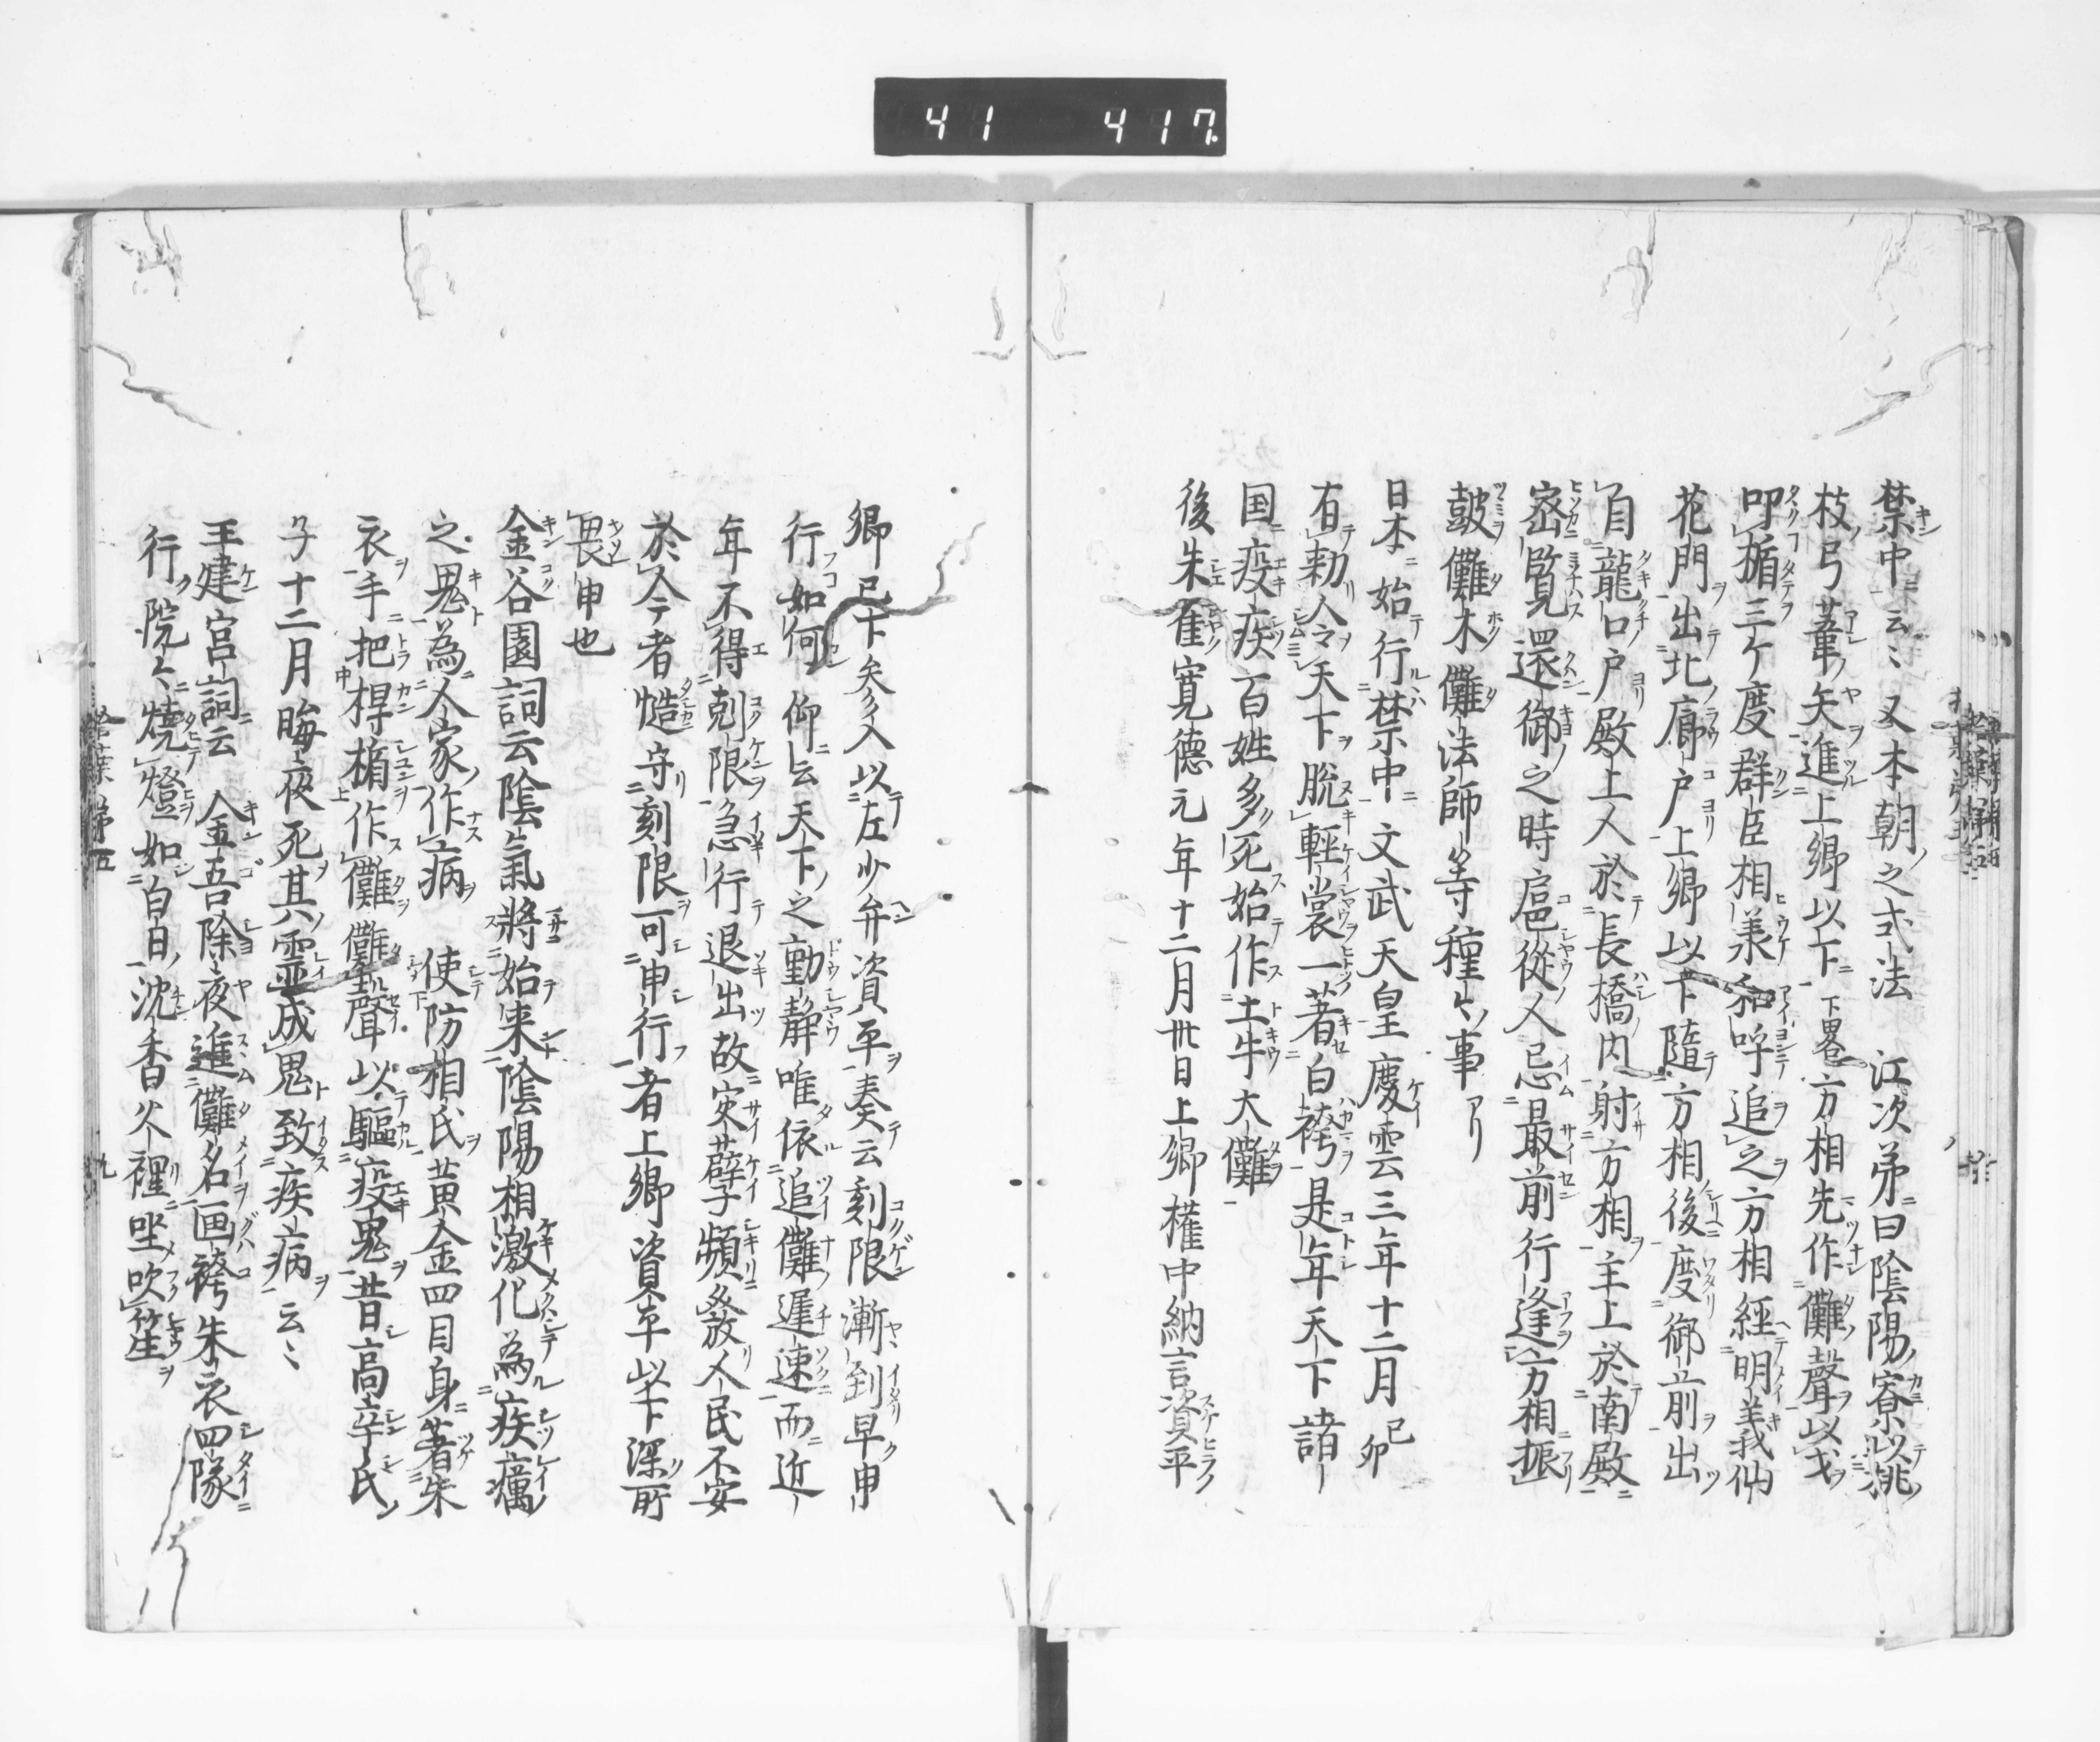 41 417
禁中云〻又本朝之式法 江次第曰陰陽寮以桃
枝弓葦矢進上卿以下下畧方相先作儺聲以戈
叩楯三ケ度群臣相羕和呼追之方相經明義仙
花門出北廊戸上卿以下隨方相後度御前出
自龍口戸殿上人於長橋内射方相主上於南殿
密覽還御之時扈從人忌最前行逢方相振
皷儺木儺法師等種〻事アリ
日本始行禁中文武天皇慶雲三年十二月己卯
有勅令天下脫輕裳一著白袴是年天下諸
国疫疾百姓多死始作土牛大儺
後朱雀寛德元年十二月卅日上卿權中納言資平
卿已下参入以左少弁資平奏云刻限漸到早申
行如何仰云天下之動靜唯依追儺遲速而近
年不得剋限急行退出故灾孽頻發人民不安
於今者慥守刻限可申行者上卿資平以下深所
畏申也
金谷園詞云陰氣將始来陰陽相激化為疾癘
之鬼為人家作病 使防相氏黄金四目身著朱
衣手把桙楯作儺儺聲以驅疫鬼昔高辛氏
子十二月晦夜死其靈成鬼致疾病云〻
王建宮詞云 金吾除夜進儺名画袴朱衣四隊
行院〻燒燈如白日沈香火裡坐吹笙